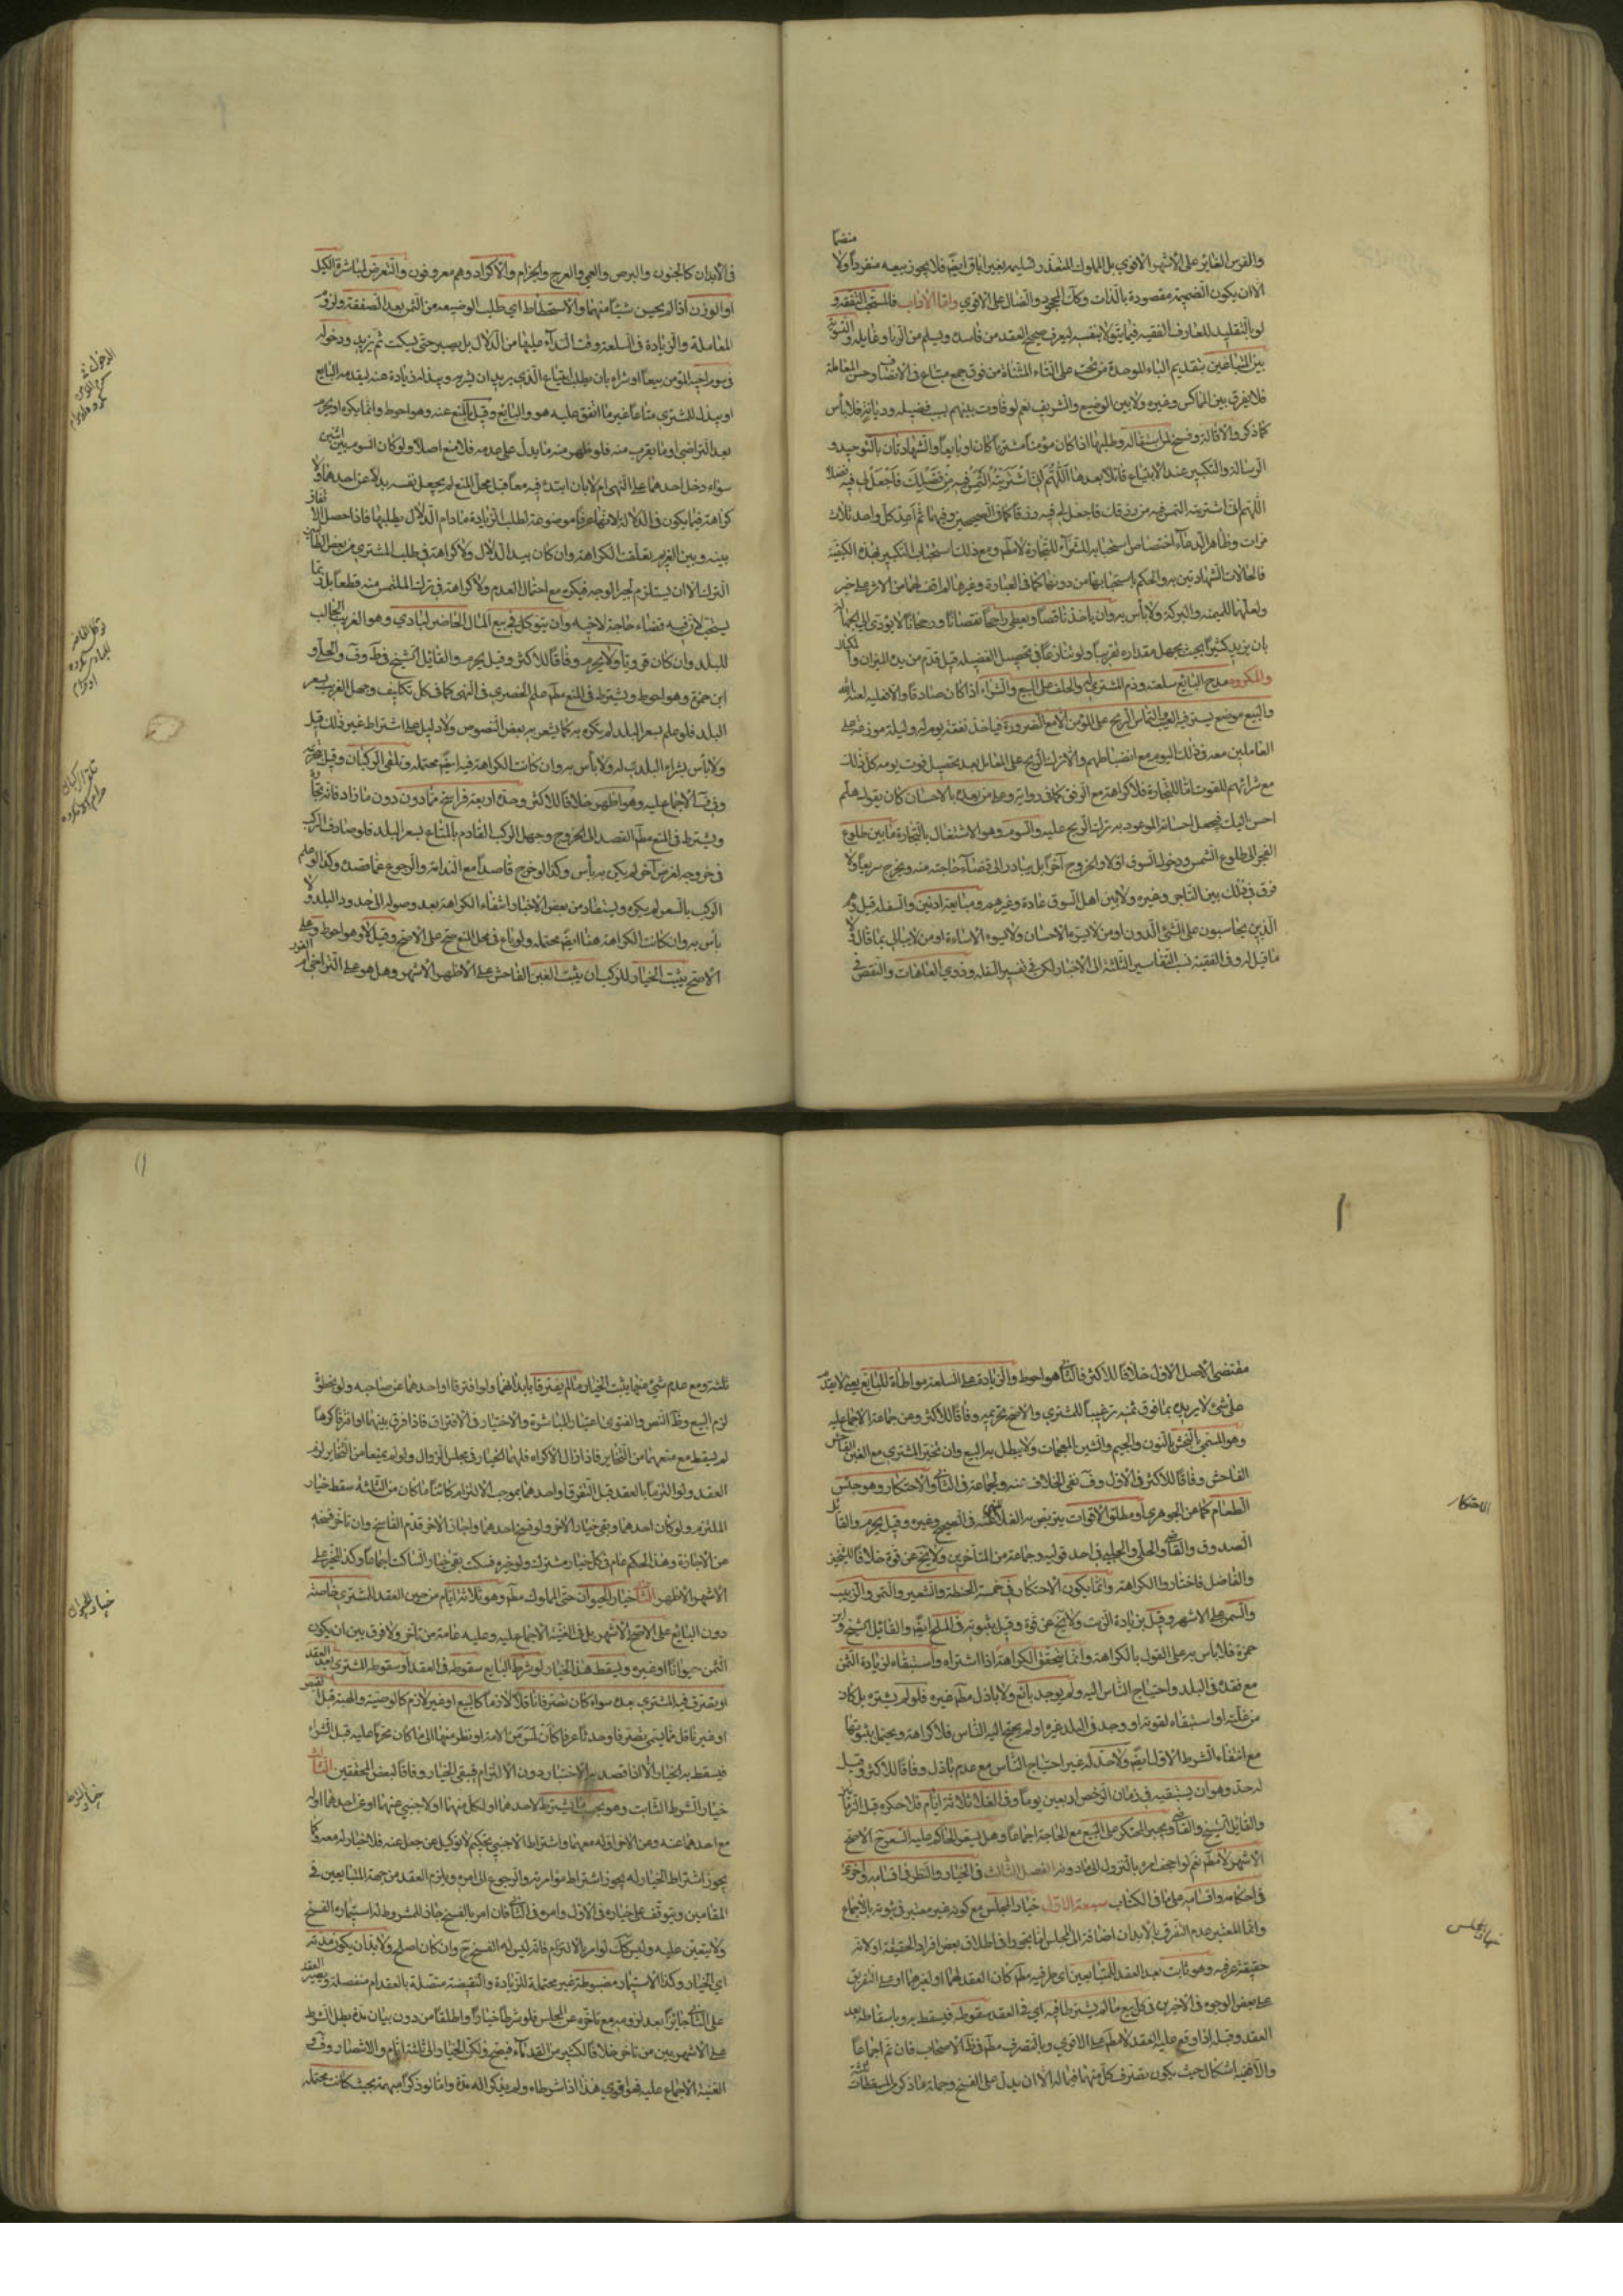 منضما
والفرس الغاير على الأشهر الاقوى بل المملوك المتعذر تسليمه بغير اباق ايضا فلا يجوز بيعه منفردا ولا
الا ان يكون الضميمة مقصودة بالذات وكك المجحود والضال على الاقوى واما الآداب فالمستحب التفقه و
لو بالتقليد للعارف الفقيه فيما يتولاه بنفسه ليعرف صحيح العقد من فاسده ويسلم من الربا وغايله والتسوية
بين المتبايعين بتقديم الباء الموحدة من تحت على التاء المثناة من فوق جمع مبتاع في الانصاف وحسن المعاملة
فلا يفرق بين المماكس وغيره ولا بين الوضيع والشريف نعم لو فاوت بينهم بسبب فضيلة وديانة فلا بأس
كما ذكر والاقالة وفسخ لمن استقاله وطلبها اذا كان مؤمنا مشتريا كان او بايعا والشهادتان بالتوحيد و
الرسالة والتكبير عند الابتياع قائلا بعدها اللهم انى اشتريته التمس فيه من فضلك فاجعل لي فيه فضلا
اللهم انى اشتريته التمس فيه من رزقك فاجعل لى فيه رزقا كما في الصحيحين وفيهما ثم اعد كل واحدة ثلاث
مرات وظاهر الدعاء اختصاص استحبابه للشراء للتجارة لا مطم ومع ذلك استحباب التكبير بهذه الكيفية
فالحالات الشهادتين به والحكم باستحبابهما من دونها كما في العبارة وغيرها لم اقف لهما من الاثر على خبر
ولعلهما لليمنه والبركة ولا بأس به وان يأخذ ناقصا ويعطى راجحا نقصانا ورجحانا لا يؤدى الى الجهالة
بان يزيد كثيرا بحيث يجهل مقداره تقريبا ولو تنازعا في تحصيل الفضيلة قيل قدم من بيده الميزان والمكيال
والمكروه مدح البايع سلعته وذم المشترى لها والحلف على البيع والشراء اذا كان صادقا والا فعليه لعنة الله
والبيع موضع يستر فيه العيب والتماس الربح على المؤمن الا مع الضرورة فياخذ نفقة يوم له وليلة موزعة على
العاملين معه في ذلك اليوم مع انضباطهم والا ترك الربح على المعامل بعد تحصيل قوت يومه كل ذلك
مع شرائهم للقوت اما للتجارة فلا كراهة مع الرفق كما في رواية وعلى من يعده بالاحسان كان يقول له هلم
احسن اليك فيجعل احسانه الموعود به ترك الربح عليه والسوم وهو الاشتغال بالتجارة ما بين طلوع
الفجر الى طلوع الشمس ودخول السوق اولا والخروج آخرا بل يبادر الى قضاء حاجته منه ويخرج سريعا ولا
فرق في ذلك بين التاجر وغيره ولا بين اهل السوق عادة وغيرهم ومبايعة الادنين والسفلة قيل وهم
الذين يحاسبون على الشئ الدون او من لا يسره الاحسان ولا يسوءه الاساءة او من لا يبالي بما قال ولا
ما قيل له وفي الفقيه نسب التفاسير الثلثة الى الاخبار لكن في تفسير السفلة وذوي العاهات والنقص في
في الأبدان كالجنون والبرص والعمى والعرج والجزام والاكراد وهم معروفون والتعرض لمباشرة الكيل
او الوزن اذا لم يحسن شيئا منهما والاستحطاط اى طلب الوضيعة من الثمن بعد الصفقة ولزوم
المعاملة والزيادة في السلعة وقت النداء عليها من الدلال بل يصبر حتى يسكت ثم يزيد ودخوله
في سوم اخيه المؤمن بيعا او شراء بان يطلب ابتياع الذي يريد ان يشتريه ويبذل له زيادة عنه ليقدمه البايع
او يبذل للمشترى متاعا غير ما اتفق عليه هو والبايع وقيل بالمنع عنه وهو احوط وانما يكره او يحرم
بعد التراضى او ما يقرب منه فلو ظهر منه ما يدل على عدمه فلا منع اصلا ولو كان السوم بين اثنين
سواء دخل احدهما على النهى ام لا بان ابتدئ فيه معا قبل محل المنع لم يجعل نفسه بدلا عن احدهما ولا
كراهة فيما يكون في الدلالة لانها عرفا موضوعة لطلب الزيادة ما دام الدلال يطلبها فاذا حصل الاتفاق
بينه وبين الغريم تعلقت الكراهة وان كان بيد الدلال ولا كراهة في طلب المشترى من بعض الطالبين
الترك الا ان يستلزم لجبر الوجه فيكره مع احتمال العدم ولا كراهة في ترك الملتمس منه قطعا بل ربما
يستحب لان فيه قضاء حاجة لاخيه وان يتوكل في بيع المال الحاضر لبادى وهو الغريب الجالب
للبلد وان كان قرويا ولا يحرم وفاقا للاكثر وقيل يحرم والقائل الشيخ في ط وف والحلى و
ابن حمزة وهو احوط ويشترط في المنع مطم علم الحضرى في النهى كما في كل تكليف وجهل الغريب بسعر
البلد فلو علم بسعر البلد لم يكره به كما يشعر به بعض النصوص ولا دليل على اشتراط غير ذلك قيل
ولا بأس بشراء البلدى له ولا بأس به وان كانت الكراهة فيه ايضا محتملة وتلقى الركبان وقيل بحرمته
وفي ف الاجماع عليه وهو اظهر خلافا للاكثر وحده اربعة فراسخ فما دون دون ما زاد فانه تجارة
ويشترط في المنع مطم القصد الى الخروج وجهل الركب القادم بالمتاع بسعر البلد فلو صادف الركب
في خروجه لغرض آخر لم يكن به بأس وكذا لو خرج قاصدا مع الندامة والرجوع عما قصده وكذا لو علم
الركب بالسعر لم يكره ويستفاد من بعض الاخبار انتفاء الكراهة بعد وصوله الى حدود البلد ولا
بأس به وان كانت الكراهة هنا ايضا محتملة ولو باع في محل المنع صح على الاصح وقيل لا وهو احوط وعلى
الاصح يثبت الخيار للركب ان يثبت الغبن الفاحش على الاظهر الاشهر وهل هو على التراخى ام الفور
تلقى الركبان
مقتضى الاصل الاول خلافا للاكثر فالثانى وهو احوط والزيادة على السلعة مواطاة للبايع يعنى لا يقدم
على شئ لا يريده بما فوق ثمنه ترغيبا للمشترى والاصح تحريمه وفاقا للاكثر وعن جماعة الاجماع عليه
وهو المسمى بالنجش بالنون والجيم والشين المعجمات ولا يبطل به البيع وان تخير المشترى مع الغبن الفاحش
الفاحش وفاقا للاكثر في الاول وف نفى الخلاف عنه ولجماعة في الثانى والاحتكار وهو حبس
الطعام كما عن الجوهرى او مطلق الاقوات يتربص به الغلاء للنهى عنه في الصحيح وغيره وقيل يحرم والقائل
الصدوق والقاضى والحلى والحلبى في احد قوليه وجماعة من المتأخرين ولا يخ عن قوة خلافا للشيخين
والفاضل فاختاروا الكراهة وانما يكون الاحتكار في خمسة الحنطة والشعير والتمر والزبيب
والسمن على الاشهر وقيل بزيادة الزيت ولا يخ عن قوة وقيل بثبوته في الملح ايضا والقائل الشيخ وابن
حمزة فلا بأس به على القول بالكراهة وانما يتحقق الكراهة اذا اشتراه واستبقاه لزيادة الثمن
مع فقده في البلد واحتياج الناس اليه ولم يوجد بائع ولا باذل مطم غيره فلو لم يشتره بل كان
من غلته او استبقاه لقوته او وجد في البلد غيره او لم يحتج اليه الناس فلا كراهة ويحتمل ثبوتها
مع انتفاء الشرط الاول ايضا ولا حد له غير احتياج الناس مع عدم باذل وفاقا للاكثر وقيل
له حد وهو ان يستبقيه في زمان الرخص اربعين يوما وفي الغلاء ثلاثة ايام فلا حكرة قبل الزمانين
والقائل الشيخ والقاضى ويجبر المحتكر على البيع مع الحاجة اجماعا وهل يسعر الحاكم عليه السعر ح الاصح
الاشهر لا مطم نعم لو اجحف امر بالنزول الى ما دونه الفصل الثالث في الخيار والنظر في اقسامه واخرى
في احكامه واقسامه على ما في الكتاب سبعة الاول خيار المجلس مع كونه غير معتبر في ثبوته بالاجماع
وانما المعتبر عدم التفرق بالابدان اضافة الى المجلس اما تجوز في اطلاق بعض افراد الحقيقة او لانه
حقيقة عرفية وهو ثابت بعد العقد للمتبايعين اى طرفيه مطم كان العقد لهما او لغيرهما او على التفريق
على بعض الوجوه في الاخيرين في كل بيع ما لم يشترط فيه اى في العقد سقوطه فيسقط به وباسقاطه بعد
العقد وقيل اذا وقع عليه العقد لا مطم على الاقوى وبالتصرف مطم في ظ الاصحاب فان تم اجماعا
والا ففيه اشكال حيث يكون تصرف كل منهما فيما له الا ان يدل على الفسخ وجملة ما ذكر من المسقطات ثلثة
الاحتكار
خيار المجلس
ثلثة ومع عدم شئ منهما يثبت الخيار ما لم يفترقا بابدانهما ولو افترقا او احدهما عن صاحبه ولو بخطوة
لزم البيع وظ النص والفتوى اعتبار المباشرة والاختيار في الافتراق فاذا فرق بينهما او افترقا كرها
لم يسقط مع منعهما من التخاير فاذا زال الاكراه فلهما الخيار في مجلس الزوال ولو لم يمنعا من التخاير لزم
العقد ولو التزما بالعقد قبل التفرق او احدهما بموجب الالتزام كائنا ما كان من الثلثة سقط خيار
الملتزم ولو كان احدهما وبقى خيار الآخر ولو فسخ احدهما واجاز الآخر قدم الفاسخ وان تأخر فسخه
عن الاجازة وهذا الحكم عام في كل خيار مشترك ولو خيره فسكت بقى خيار الساكت اجماعا وكذا المخير على
الاشهر الاظهر الثانى خيار الحيوان حتى المملوك مطم وهو ثلاثة ايام من حين العقد للمشترى خاصة
دون البايع على الاصح الاشهر بل في الغنية الاجماع عليه وعليه عامة من تأخر ولا فرق بين ان يكون
الثمن حيوانا او غيره ويسقط هذا الخيار لو شرط البايع سقوطه في العقد او اسقوطه المشترى بعد العقد
او تصرف فيه المشترى بعده سواء كان تصرفا ناقلا لازما كالبيع او غير لازم كالوصية والهبة قبل القبض
او غير ناقل مما يسمى تصرفا وحدثا عرفا كأن لمس من الامة او نظر منها الى ما كان محرما عليه قبل الشراء
فيسقط به الخيار الا اذا قصد به الاختبار دون الالتزام فيبقى الخيار وفاقا لبعض المحققين الثالث
خيار الشرط الثابت وهو بحسب ما يشترط لاحدهما او لكل منهما او لاجنبى عنهما او عن احدهما او له
مع احدهما عنه وعن الآخر او له معهما واشتراط الاجنبى تحكيم لا توكيل عمن جعل عنه فلا خيار له معه وكما
يجوز اشتراط الخيار له يجوز اشتراط مؤامرته والرجوع الى امره ويلزم العقد من جهة المتبايعين في
المقامين ويتوقف على خياره في الاول وامره في الثانى فان امر بالفسخ جاز للمشروط له استيماره الفسخ
ولا يتعين عليه وليس كك لو امر بالالتزام فانه ليس له الفسخ ح وان كان اصلح ولابد ان يكون مدته
اى الخيار وكذا الاستيمار مضبوطة غير محتملة للزيادة والنقيصة متصلة بالعقد ام منفصلة ويصير العقد
على الثانى جائزا بعد لزومه مع تأخره عن المجلس فلو شرطا خيارا واطلقا من دون بيان مدة بطل الشرط
على الاشهر بين من تأخر خلافا لكثير من القدماء فيصح ولكن الخيار الى ثلثة ايام والانتصار وف و
الغنية الاجماع عليه فهو اقوى هذا اذا شرطاه ولم يذكرا له مدة واما لو ذكراه مبهمة بحيث كانت محتملة
خيار الحيوان
خيار الشرط